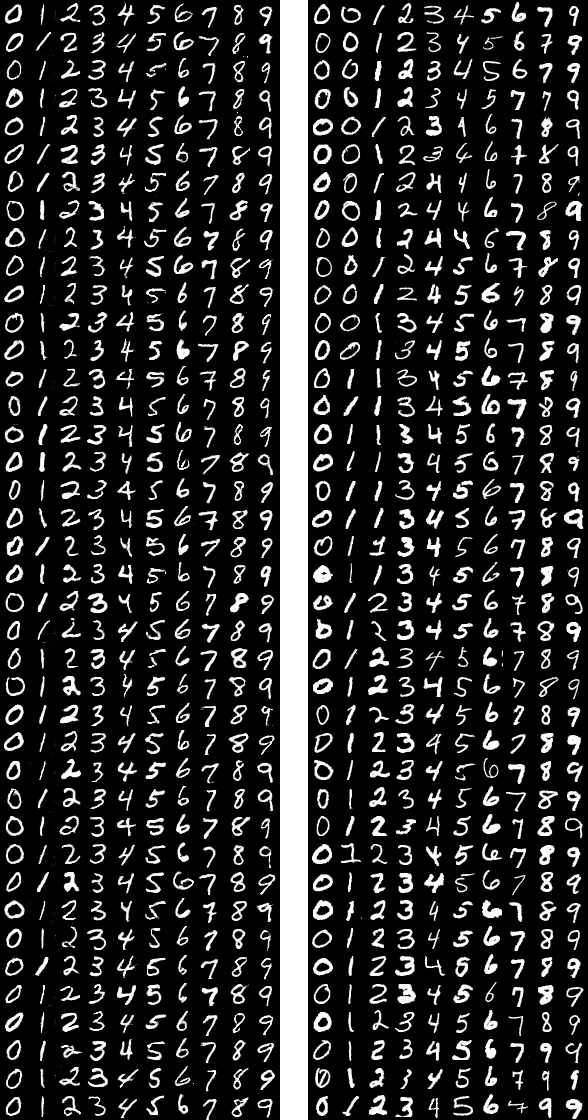 0 1 2 3 4 5 6 7 8 9
0 1 2 3 4 5 6 7 8 9
0 1 2 3 4 5 6 7 8 9
0 1 2 3 4 5 6 7 8 9
0 1 2 3 4 5 6 7 8 9
0 1 2 3 4 5 6 7 8 9
0 1 2 3 4 5 6 7 8 9
0 1 2 3 4 5 6 7 8 9
0 1 2 3 4 5 6 7 8 9
0 1 2 3 4 5 6 7 8 9
0 1 2 3 4 5 6 7 8 9
0 1 2 3 4 5 6 7 8 9
0 1 2 3 4 5 6 7 8 9
0 1 2 3 4 5 6 7 8 9
0 1 2 3 4 5 6 7 8 9
0 1 2 3 4 5 6 7 8 9
0 1 2 3 4 5 6 7 8 9
0 1 2 3 4 5 6 7 8 9
0 1 2 3 4 5 6 7 8 9
0 1 2 3 4 5 6 7 8 9
0 1 2 3 4 5 6 7 8 9
0 1 2 3 4 5 6 7 8 9
0 1 2 3 4 5 6 7 8 9
0 1 2 3 4 5 6 7 8 9
0 1 2 3 4 5 6 7 8 9
0 1 2 3 4 5 6 7 8 9
0 1 2 3 4 5 6 7 8 9
0 1 2 3 4 5 6 7 8 9
0 1 2 3 4 5 6 7 8 9
0 1 2 3 4 5 6 7 8 9
0 1 2 3 4 5 6 7 8 9
0 1 2 3 4 5 6 7 8 9
0 1 2 3 4 5 6 7 8 9
0 1 2 3 4 5 6 7 8 9
0 1 2 3 4 5 6 7 8 9
0 1 2 3 4 5 6 7 8 9
0 1 2 3 4 5 6 7 8 9
0 1 2 3 4 5 6 7 8 9
0 1 2 3 4 5 6 7 8 9
0 1 2 3 4 5 6 7 8 9
0 0 1 2 3 4 5 6 7 9
0 0 1 2 3 4 5 6 7 9
0 0 1 2 3 4 5 6 7 9
0 0 1 2 3 4 5 7 7 9
0 0 1 2 3 4 6 7 8 9
0 0 1 2 3 4 6 7 8 9
0 0 1 2 4 4 6 7 8 9
0 0 1 2 4 4 6 7 8 9
0 0 1 2 4 4 6 7 8 9
0 0 1 2 4 5 6 7 8 9
0 0 1 2 4 5 6 7 8 9
0 0 1 3 4 5 6 7 8 9
0 0 1 3 4 5 6 7 8 9
0 1 1 3 4 5 6 7 8 9
0 1 1 3 4 5 6 7 8 9
0 1 1 3 4 5 6 7 8 9
0 1 1 3 4 5 6 7 8 9
0 1 1 3 4 5 6 7 8 9
0 1 1 3 4 5 6 7 8 9
0 1 1 3 4 5 6 7 8 9
0 1 1 3 4 5 6 7 8 9
0 1 2 3 4 5 6 7 8 9
0 1 2 3 4 5 6 7 8 9
0 1 2 3 4 5 6 7 8 9
0 1 2 3 4 5 6 7 8 9
0 1 2 3 4 5 6 7 8 9
0 1 2 3 4 5 6 7 8 9
0 1 2 3 4 5 6 7 8 9
0 1 2 3 4 5 6 7 8 9
0 1 2 3 4 5 6 7 8 9
0 1 2 3 4 5 6 7 8 9
0 1 2 3 4 5 6 7 8 9
0 1 2 3 4 5 6 7 8 9
0 1 2 3 4 5 6 7 8 9
0 1 2 3 4 5 6 7 8 9
0 1 2 3 4 5 6 7 8 9
0 1 2 3 4 5 6 7 8 9
0 1 2 3 4 5 6 7 9 9
0 1 2 3 4 5 6 7 9 9
0 1 2 3 4 5 6 7 9 9